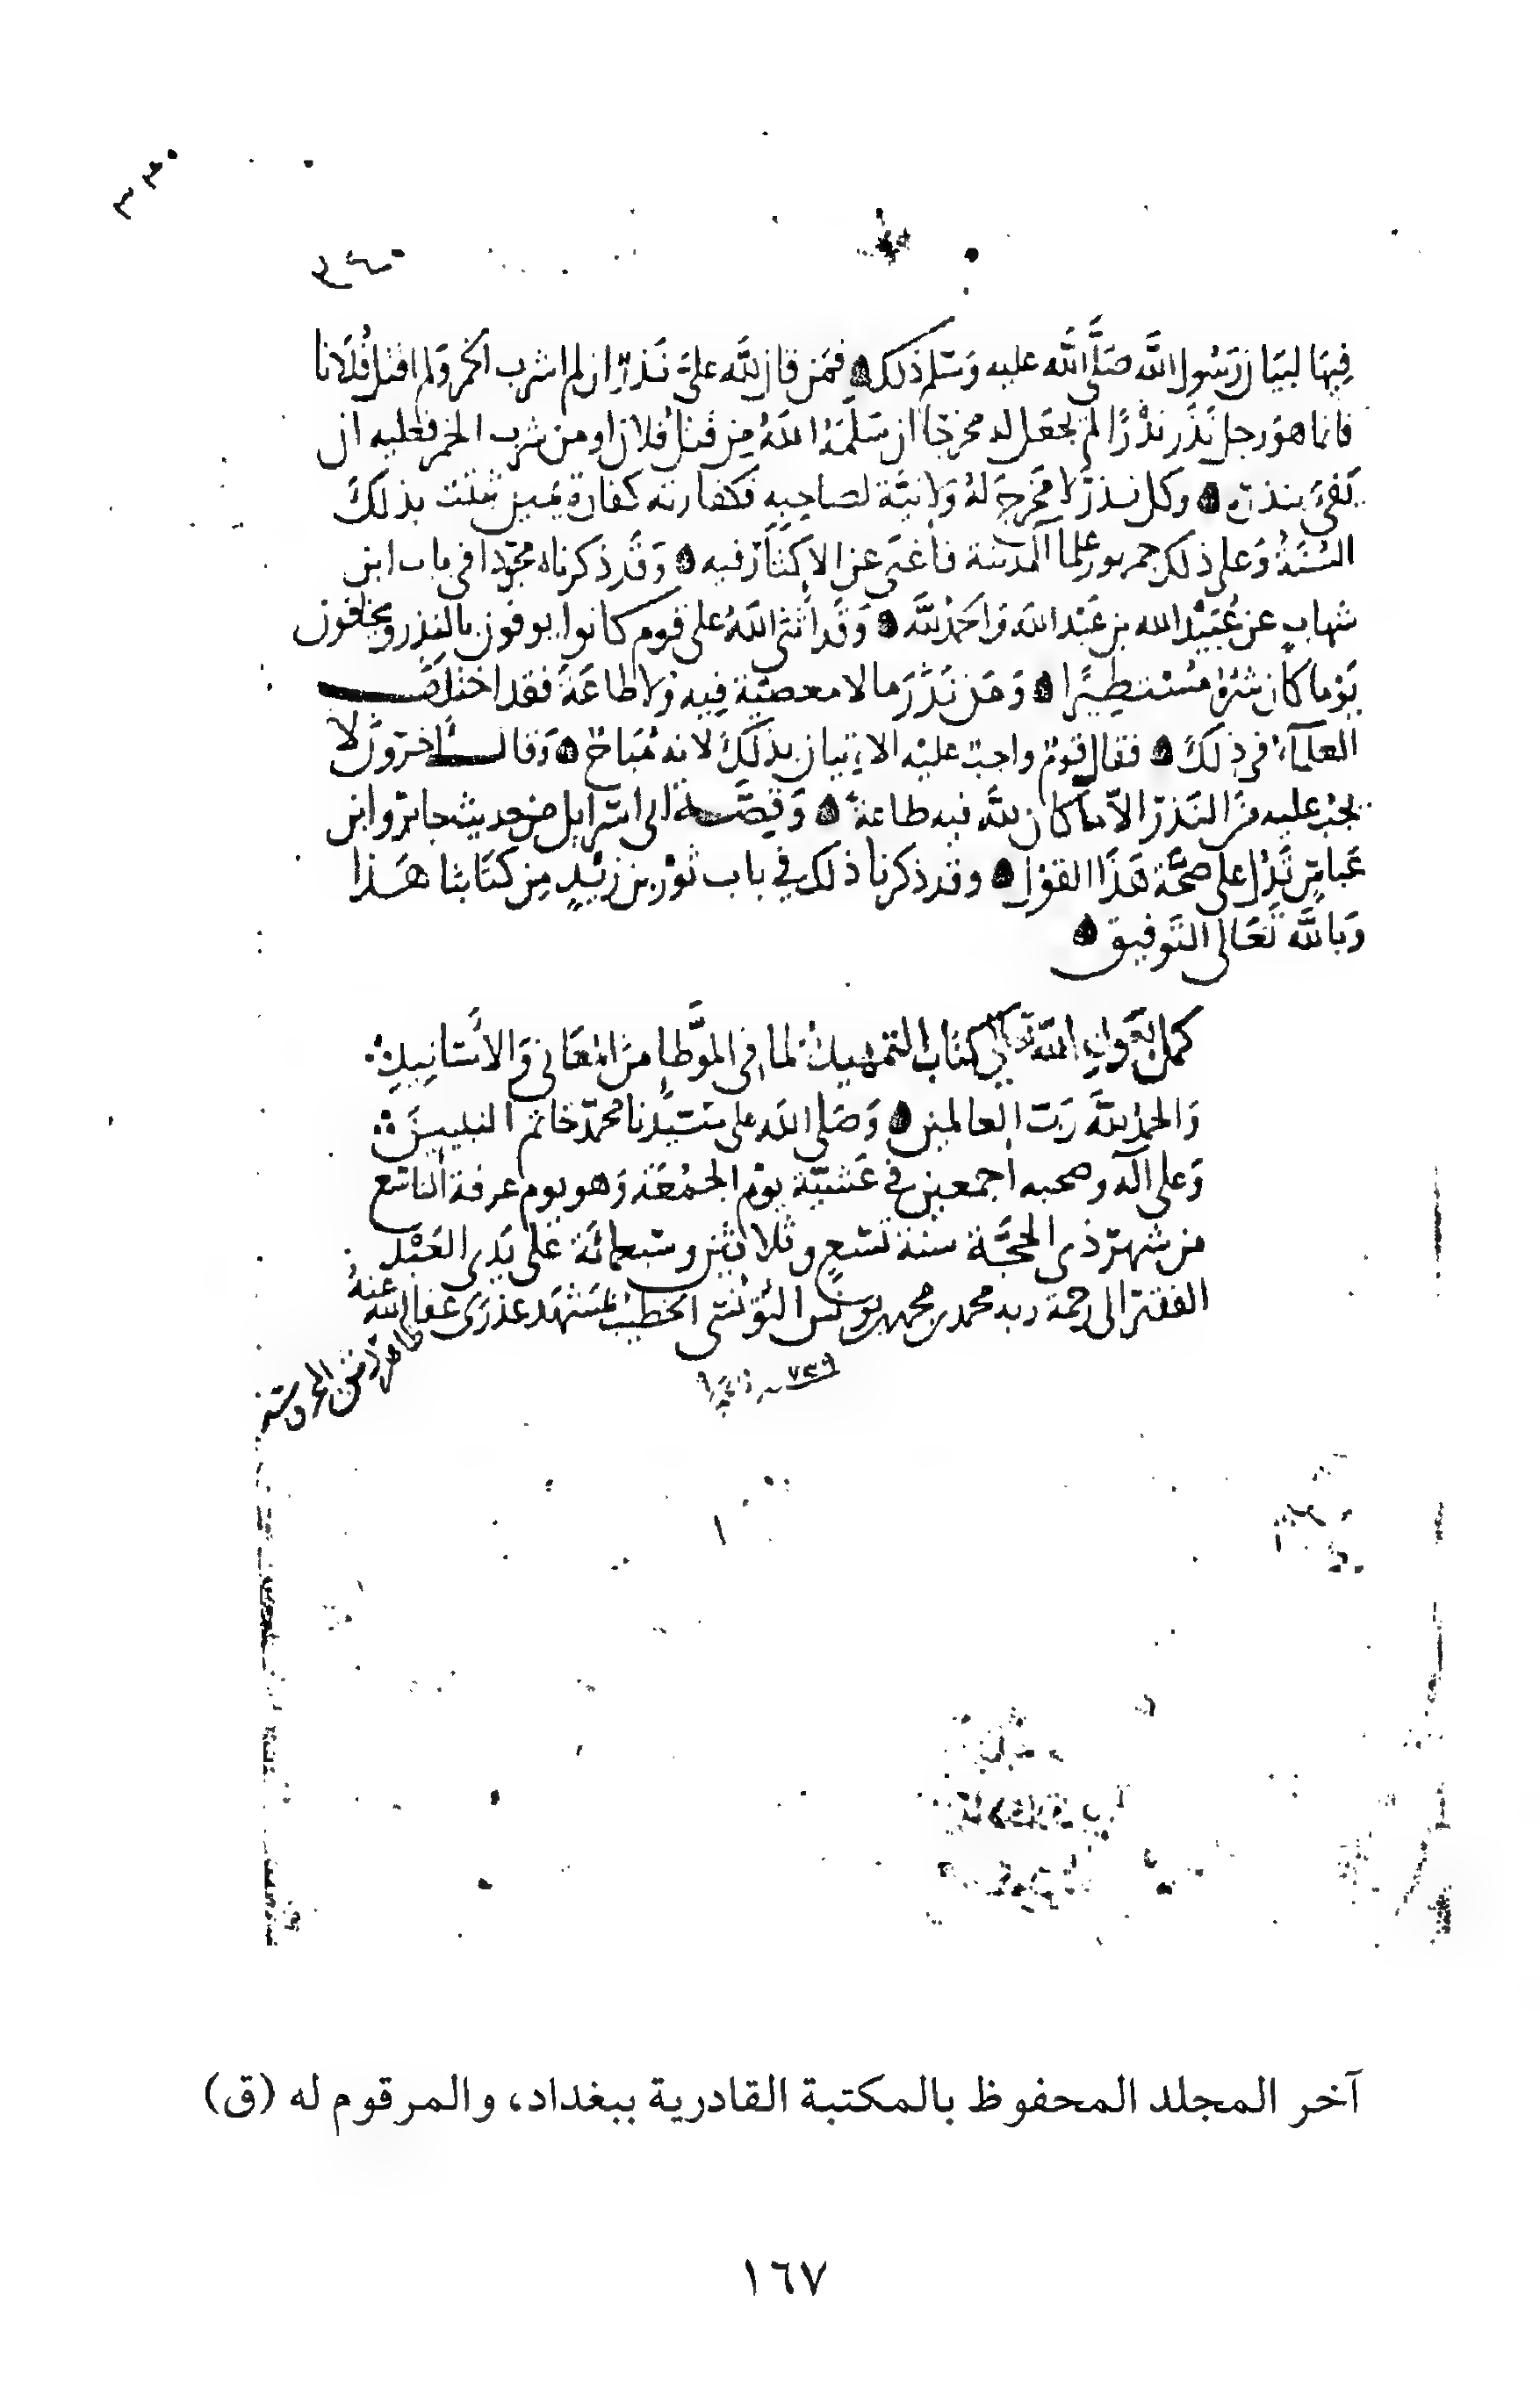 فِيهَا لبيَان رَسُول اللَّه صَلَّى اللَّه عليه وَسَلم ذلك فمَن قال للَّه عليَّ نَذرٌ ان لم اشرب الخمر وَلم اقتل فُلَانا
فانما هوَ رجل نَذَر نذْرًا لم يجعَل له مخرجًا ان سَلمَهُ اللَّهُ مِن قتل فلان او من شرب الخمر فعليه ان
يَفيَ بنذره وكل نذرٌ لا مَخْرجَ لهُ وَلا نيَّة لصاحِبِه فكفارته كفارة يَمين ثبتت بذلكَ
السُنَّةُ وَعلى ذلك جمهور علما المدينة فأغنى عن الاكثار فيه وَقد ذكرناه مجوّدا في باب ابن
شهاب عن عُبَيْد الله بن عَبْد الله وَالحَمْد للَّه وَقَد أثنى اللَّهُ على قوم كانوا يوفون بالنذر ويخافون
يَوْما كان شَرُّهُ مُسْتطِيرًا وَمَن نَذَرَ مالا معصيَة فِيه وَلا طاعَة فقد اختلَفَ
العلمآء في ذلكَ فقال قومٌ واجبٌ عليْه الاتيان بذلكَ لانه مُبَاحٌ وَقال آخرون لا
يجبُ عليه مَن النَذرِ الاّ ما كان للَّه فيه طاعةٌ وَقِصَّة ابى اسرايل من حديث جابرٍ وابن
عَباسٍ تَدُل على صحَّة هَذا القوْل وقد ذكرنا ذلك في باب ثوْر بن زيْدٍ مِن كتَابنا هَذا
وَباللَّه تعَالى التَوفيق
كمل بعَون اللَّه تعالى كتاب التمهيد لما في الموَّطا منَ المعَاني وَالأسَانيدِ
وَالحمدُ للَّه رَبّ العالمين وَصَلى اللَّه على سَيّدنا محمّد خاتم النبيين
وَعلى آله وصحبه اجمعين في عَشيّة يوْم الجمُعَة وَهو يوم عرفة التاسع
من شهر ذي الحجَّة سنة تسْعٍ وثلاثين وسَبعمائة عَلى يَدي العَبْد
الفقير الى رحمة ربه محمد بن محمد بن يونس اليُونُسي الخطيب بمَشهَد عذرَى عفا الله عنهُ
٧٣٩
آخر المجلد المحفوظ بالمكتبة القادرية ببغداد، والمرقوم له (ق)
١٦٧